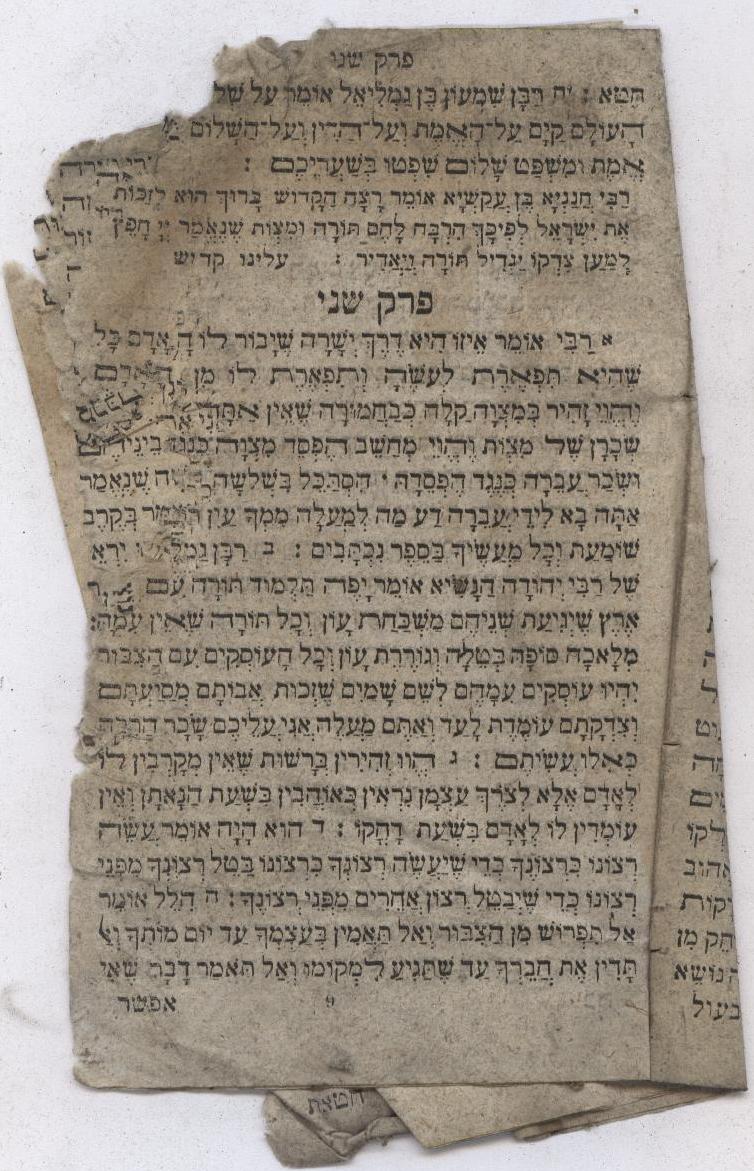 פרק שני
חטא : יח רַבָּן שִׁמְעוֹן בֶּן גַּמְלִיאֵל אוֹמֵר עַל שְׁל
הָעוֹלָם קַיָּם עַל־הָאֱמֶת וְעַל־הַדִּין וְעַל־הַשָּׁלוֹם
אֱמֶת וּמִשְׁפַּט שָׁלוֹם שִׁפְטוּ בְּשַׁעֲרֵיכֶם :
רַבִּי חֲנַנְיָא בֶּן עֲקַשְׁיָא אוֹמֵר רָצָה הַקָּדוֹשׁ בָּרוּךְ הוּא לְזַכּוֹת
אֶת יִשְׂרָאֵל לְפִיכָךְ הִרְבָּה לָהֶם תּוֹרָה וּמִצְוֹת שֶׁנֶּאֱמַר יְיָ חָפֵץ
לְמַעַן צִדְקוֹ יַגְדִּיל תּוֹרָה וְיַאְדִּיר : עלינו קדיש
פרק שני
א רַבִּי אוֹמֵר אֵיזוֹ הִיא דֶרֶךְ יְשָׁרָה שֶׁיָּבוֹר לוֹ הָאָדָם כָּל
שֶׁהִיא תִּפְאֶרֶת לְעֹשֶׂהָ וְתִפְאֶרֶת לוֹ מִן הָאָדָם
וֶהֱוֵי זָהִיר בְּמִצְוָה קַלָּה כְּבַחֲמוּרָה שֶׁאֵין אַתָּה
שְׂכָרָן שֶׁל מִצְוֹת וֶהֱוֵי מְחַשֵּׁב הֶפְסֵד מִצְוָה כְּנֶגֶד
וּשְׂכַר עֲבֵרָה כְּנֶגֶד הֶפְסֵדָהּ · הִסְתַּכֵּל בִּשְׁלֹשָׁה שֶׁנֶּאֱמַר
אַתָּה בָא לִידֵי עֲבֵרָה דַּע מַה לְּמַעְלָה מִמְּךָ עַיִן בְּקֶרֶב
שׁוֹמַעַת וְכָל מַעֲשֶׂיךָ בַּסֵּפֶר נִכְתָּבִים : ב רַבָּן גַּמְלִ יִרְאֵ
שֶׁל רַבִּי יְהוּדָה הַנָּשִׂיא אוֹמֵר יָפֶה תַּלְמוּד תּוֹרָה עִם
אֶרֶץ שֶׁיְּגִיעַת שְׁנֵיהֶם מְשַׁכַּחַת עָוֹן וְכָל תּוֹרָה שֶׁאֵין עִמָּהּ:
מְלָאכָה סוֹפָהּ בְּטֵלָה וְגוֹרֶרֶת עָוֹן וְכָל הָעוֹסְקִים עִם הַצִּבּוּר
יִהְיוּ עוֹסְקִים עִמָּהֶם לְשֵׁם שָׁמַיִם שֶׁזְּכוּת אֲבוֹתָם מְסַיַּעְתָּם
וְצִדְקָתָם עוֹמֶדֶת לָעַד וְאַתֶּם מַעֲלֶה אֲנִי עֲלֵיכֶם שָׂכָר הַרְבֵּה
כְּאִלּוּ עֲשִׂיתֶם : ג הֱווּ זְהִירִין בָּרָשׁוּת שֶׁאֵין מְקָרְבִין לוֹ
לְאָדָם אֶלָּא לְצֹרֶךְ עַצְמָן נִרְאִין כְּאוֹהֲבִין בִּשְׁעַת הֲנָאָתָן וְאֵין
עוֹמְדִין לוֹ לְאָדָם בִּשְׁעַת דָּחֳקוֹ : ד הוּא הָיָה אוֹמֵר עֲשֵׂה
רְצוֹנוֹ כִּרְצוֹנְךָ כְּדֵי שֶׁיַּעֲשֶׂה רְצוֹנְךָ כִּרְצוֹנוֹ בַּטֵּל רְצוֹנְךָ מִפְּנֵי
רְצוֹנוֹ כְּדֵי שֶׁיְּבַטֵּל רְצוֹן אֲחֵרִים מִפְּנֵי רְצוֹנֶךָ : ה הִלֵּל אוֹמֵר
אַל תִּפְרוֹשׁ מִן הַצִּבּוּר וְאַל תַּאֲמִין בְּעַצְמְךָ עַד יוֹם מוֹתְךָ
תָּדִין אֶת חֲבֵרְךָ עַד שֶׁתַּגִּיעַ לִמְקוֹמוֹ וְאַל תֹּאמַר דָּבָר שֶׁאִי
אפשר
אהוב
חק מן
הנושא
בעול
חטאת